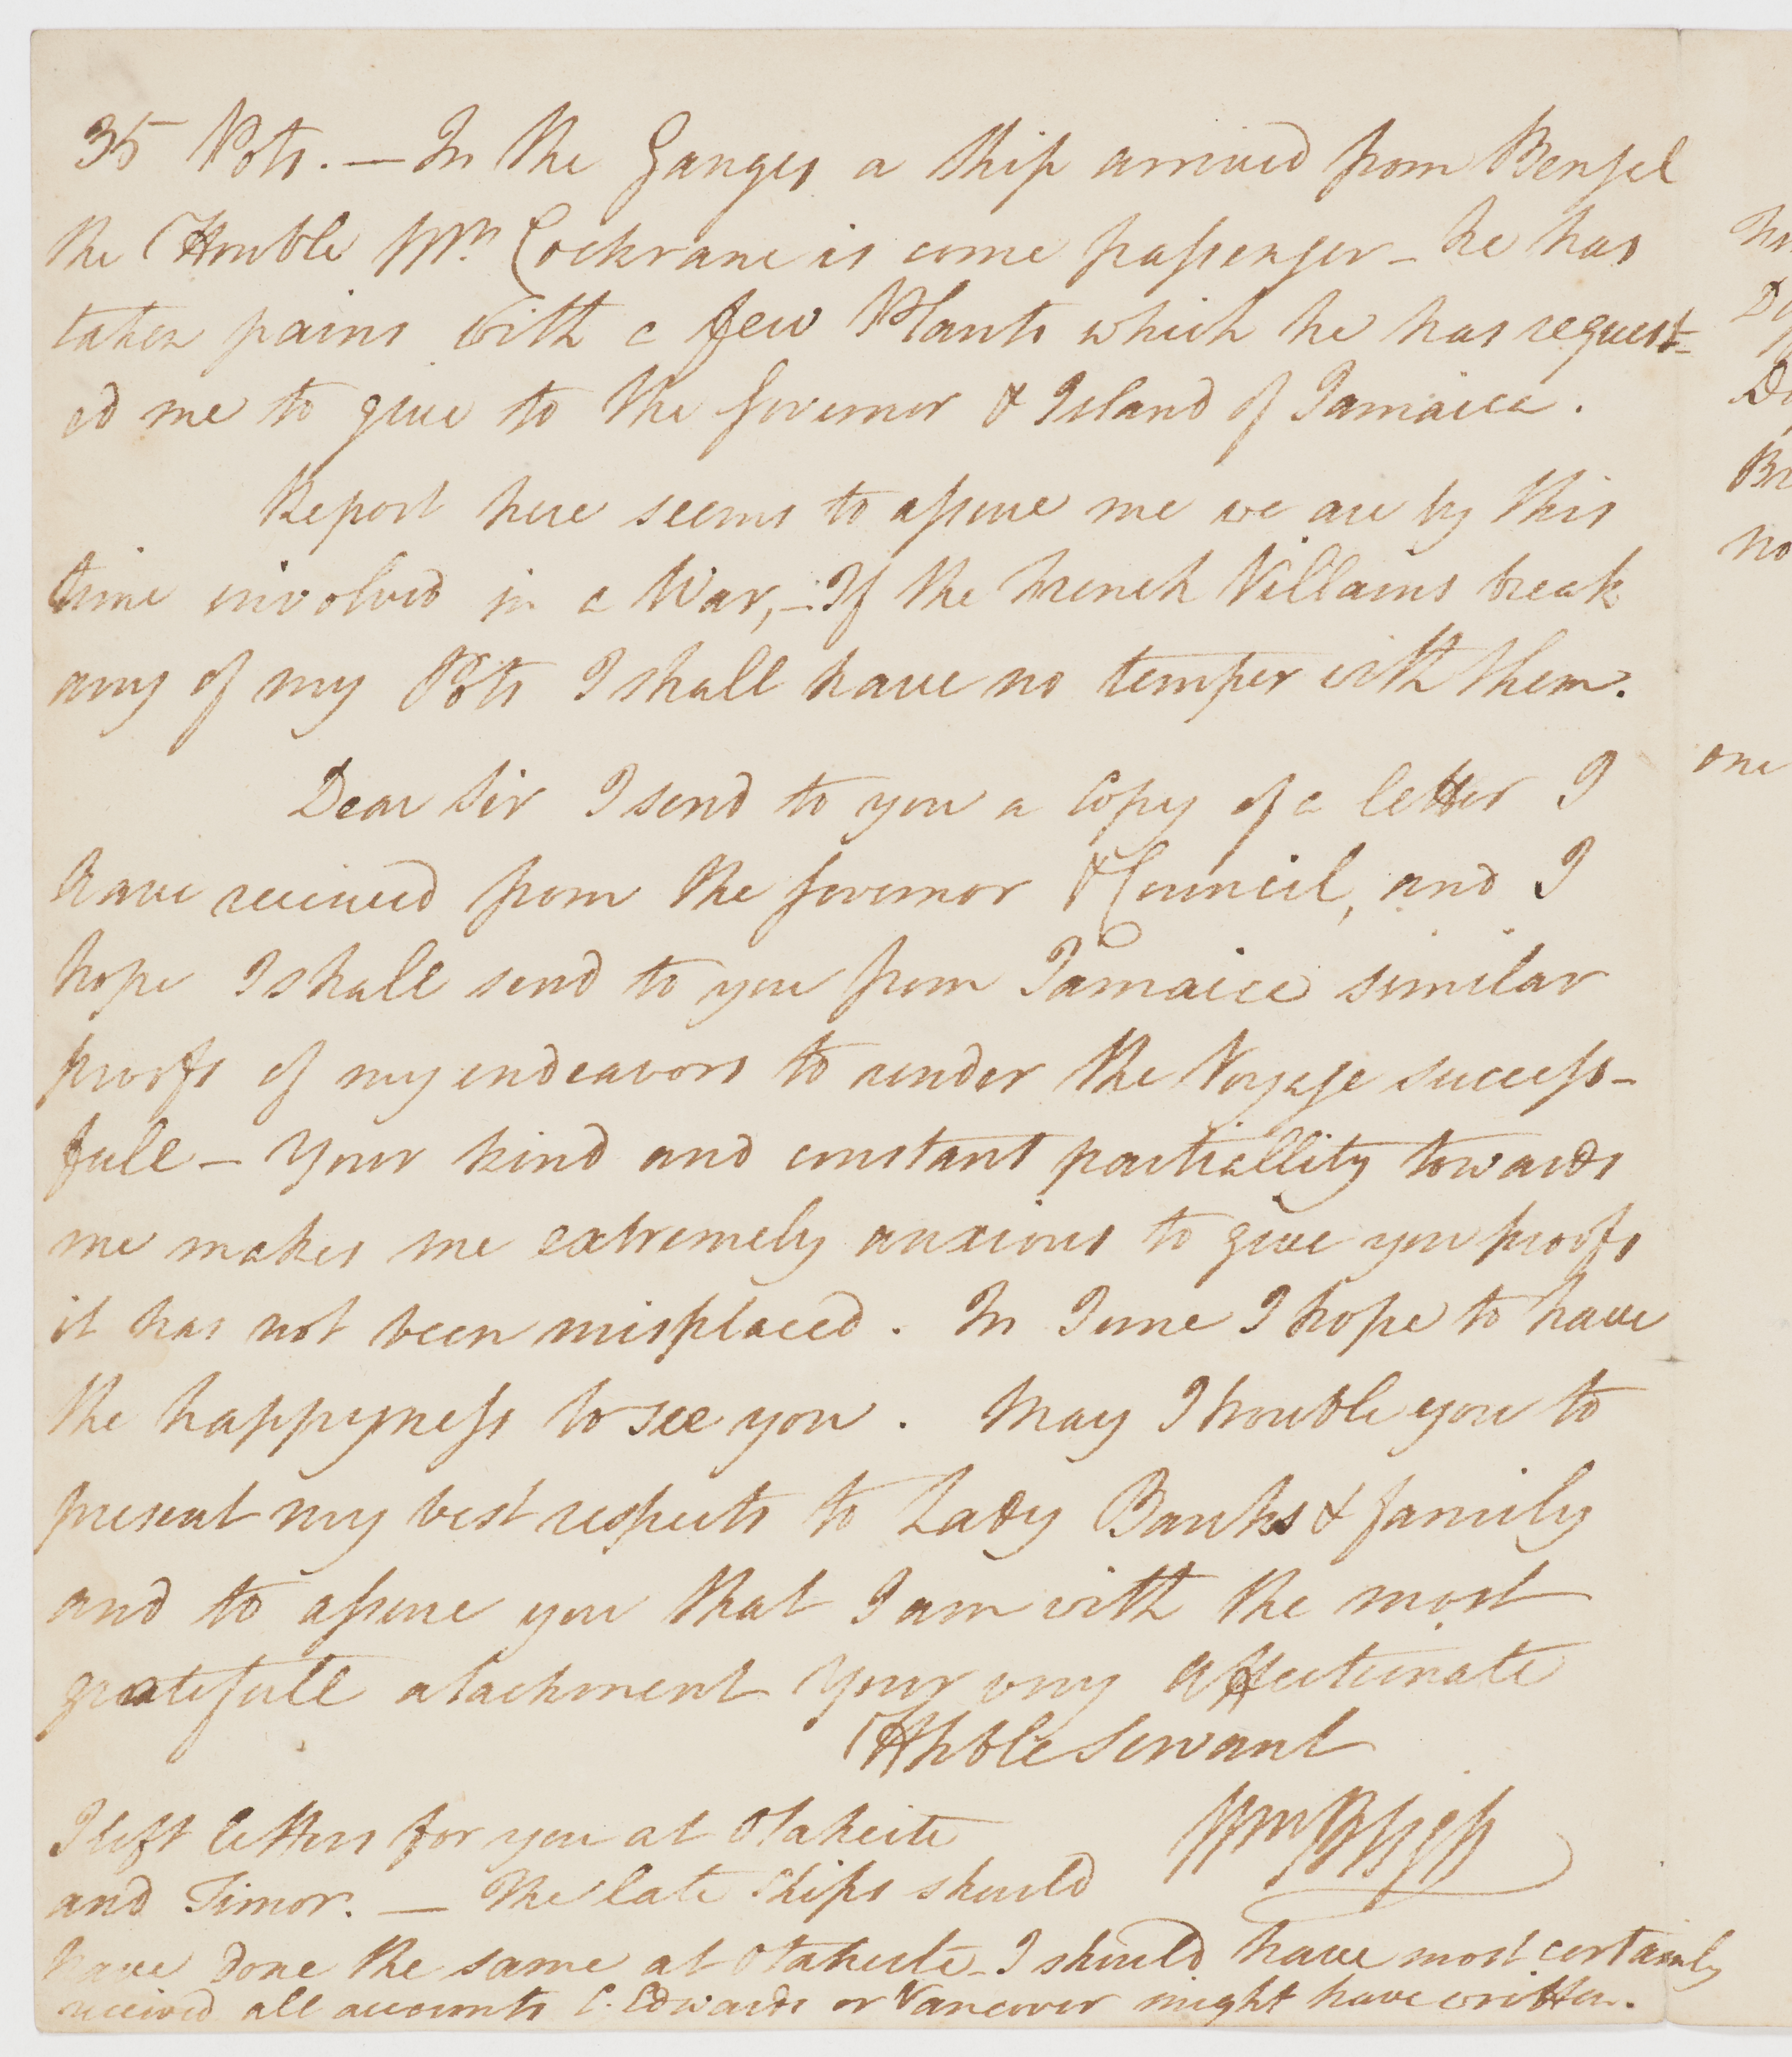 35 Pots. — In the Ganges a Ship arrived from Bengal
the Honble Mr. Cockrane is come passenger - he has
taken pains with a few Plants which he has request-
ed me to give to the Governor & Island of Jamaica.
Report here seems to assure me we are by this
time involved in a War, - If the French Villains break
any of my Pots I shall have no temper with them.
Dear Sir I send to you a Copy of a letter I
have received from the Governor & Council, and I
hope I shall send to you from Jamaica similar
proofs of my endeavors to render the Voyage success-
full - Your kind and constant partiallity towards
me makes me extremely anxious to give you proofs
it has not been misplaced. In June I hope to have
the happyness to see you. May I trouble you to
present my best respects to Lady Banks & family
and to assure you that I am with the most
gratefull atachment Your very affectionate
Hhble Servant
Wm Bligh
I left letters for you at Otaheite
and Timor. — The late Ships should
have done the same at Otaheite - I should have most certainly
received all accounts C. Edwards or Vancover might have written.
one
no